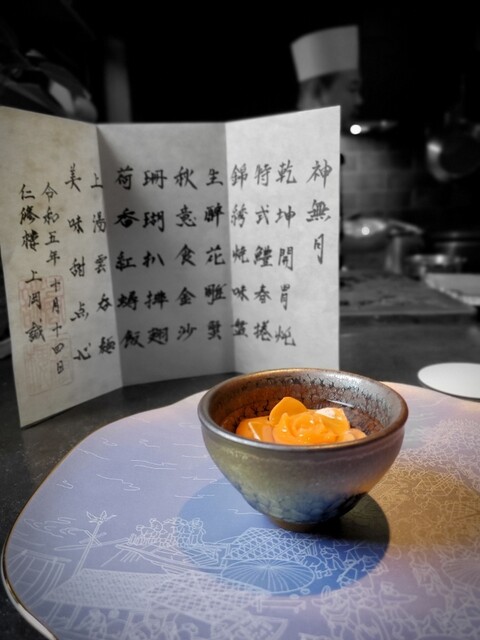 神無月
乾坤開胃炖
特式鱧春捲
錦綉焼味盤
生酔花雕蟹
秋意食金沙
珊瑚扒排翅
荷香紅蟳飯
上湯雲呑麺
美味甜点心
令和五年十月十四日
仁修樓 上岡誠